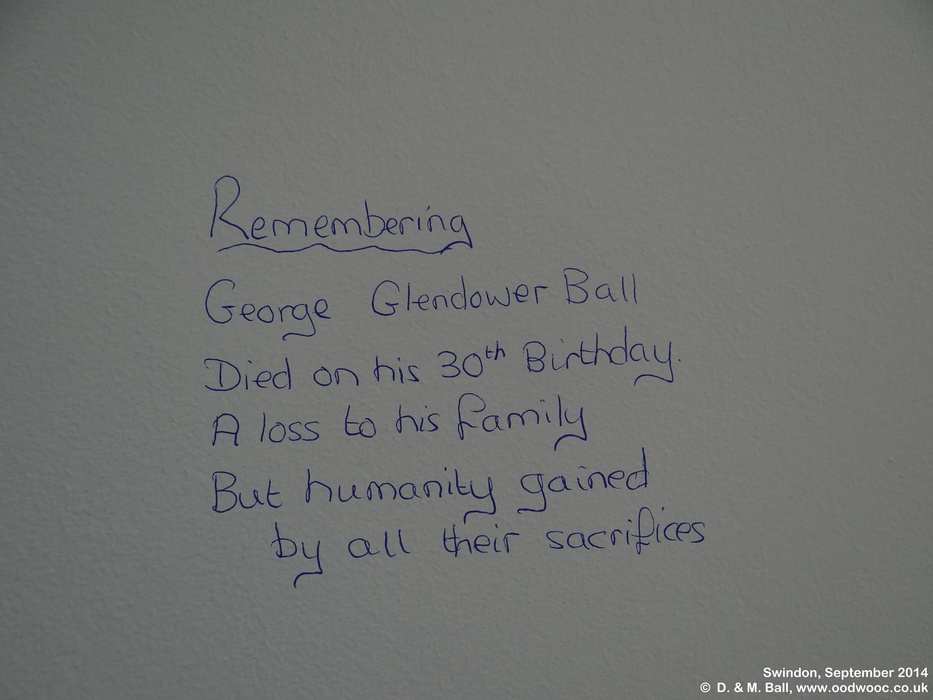 Remembering
George Glendower Ball
Died on his 30th Birthday.
A loss to his family
But humanity gained
by all their sacrifices
Swindon, September 2014
© D. & M. Ball, www.oodwooc.co.uk